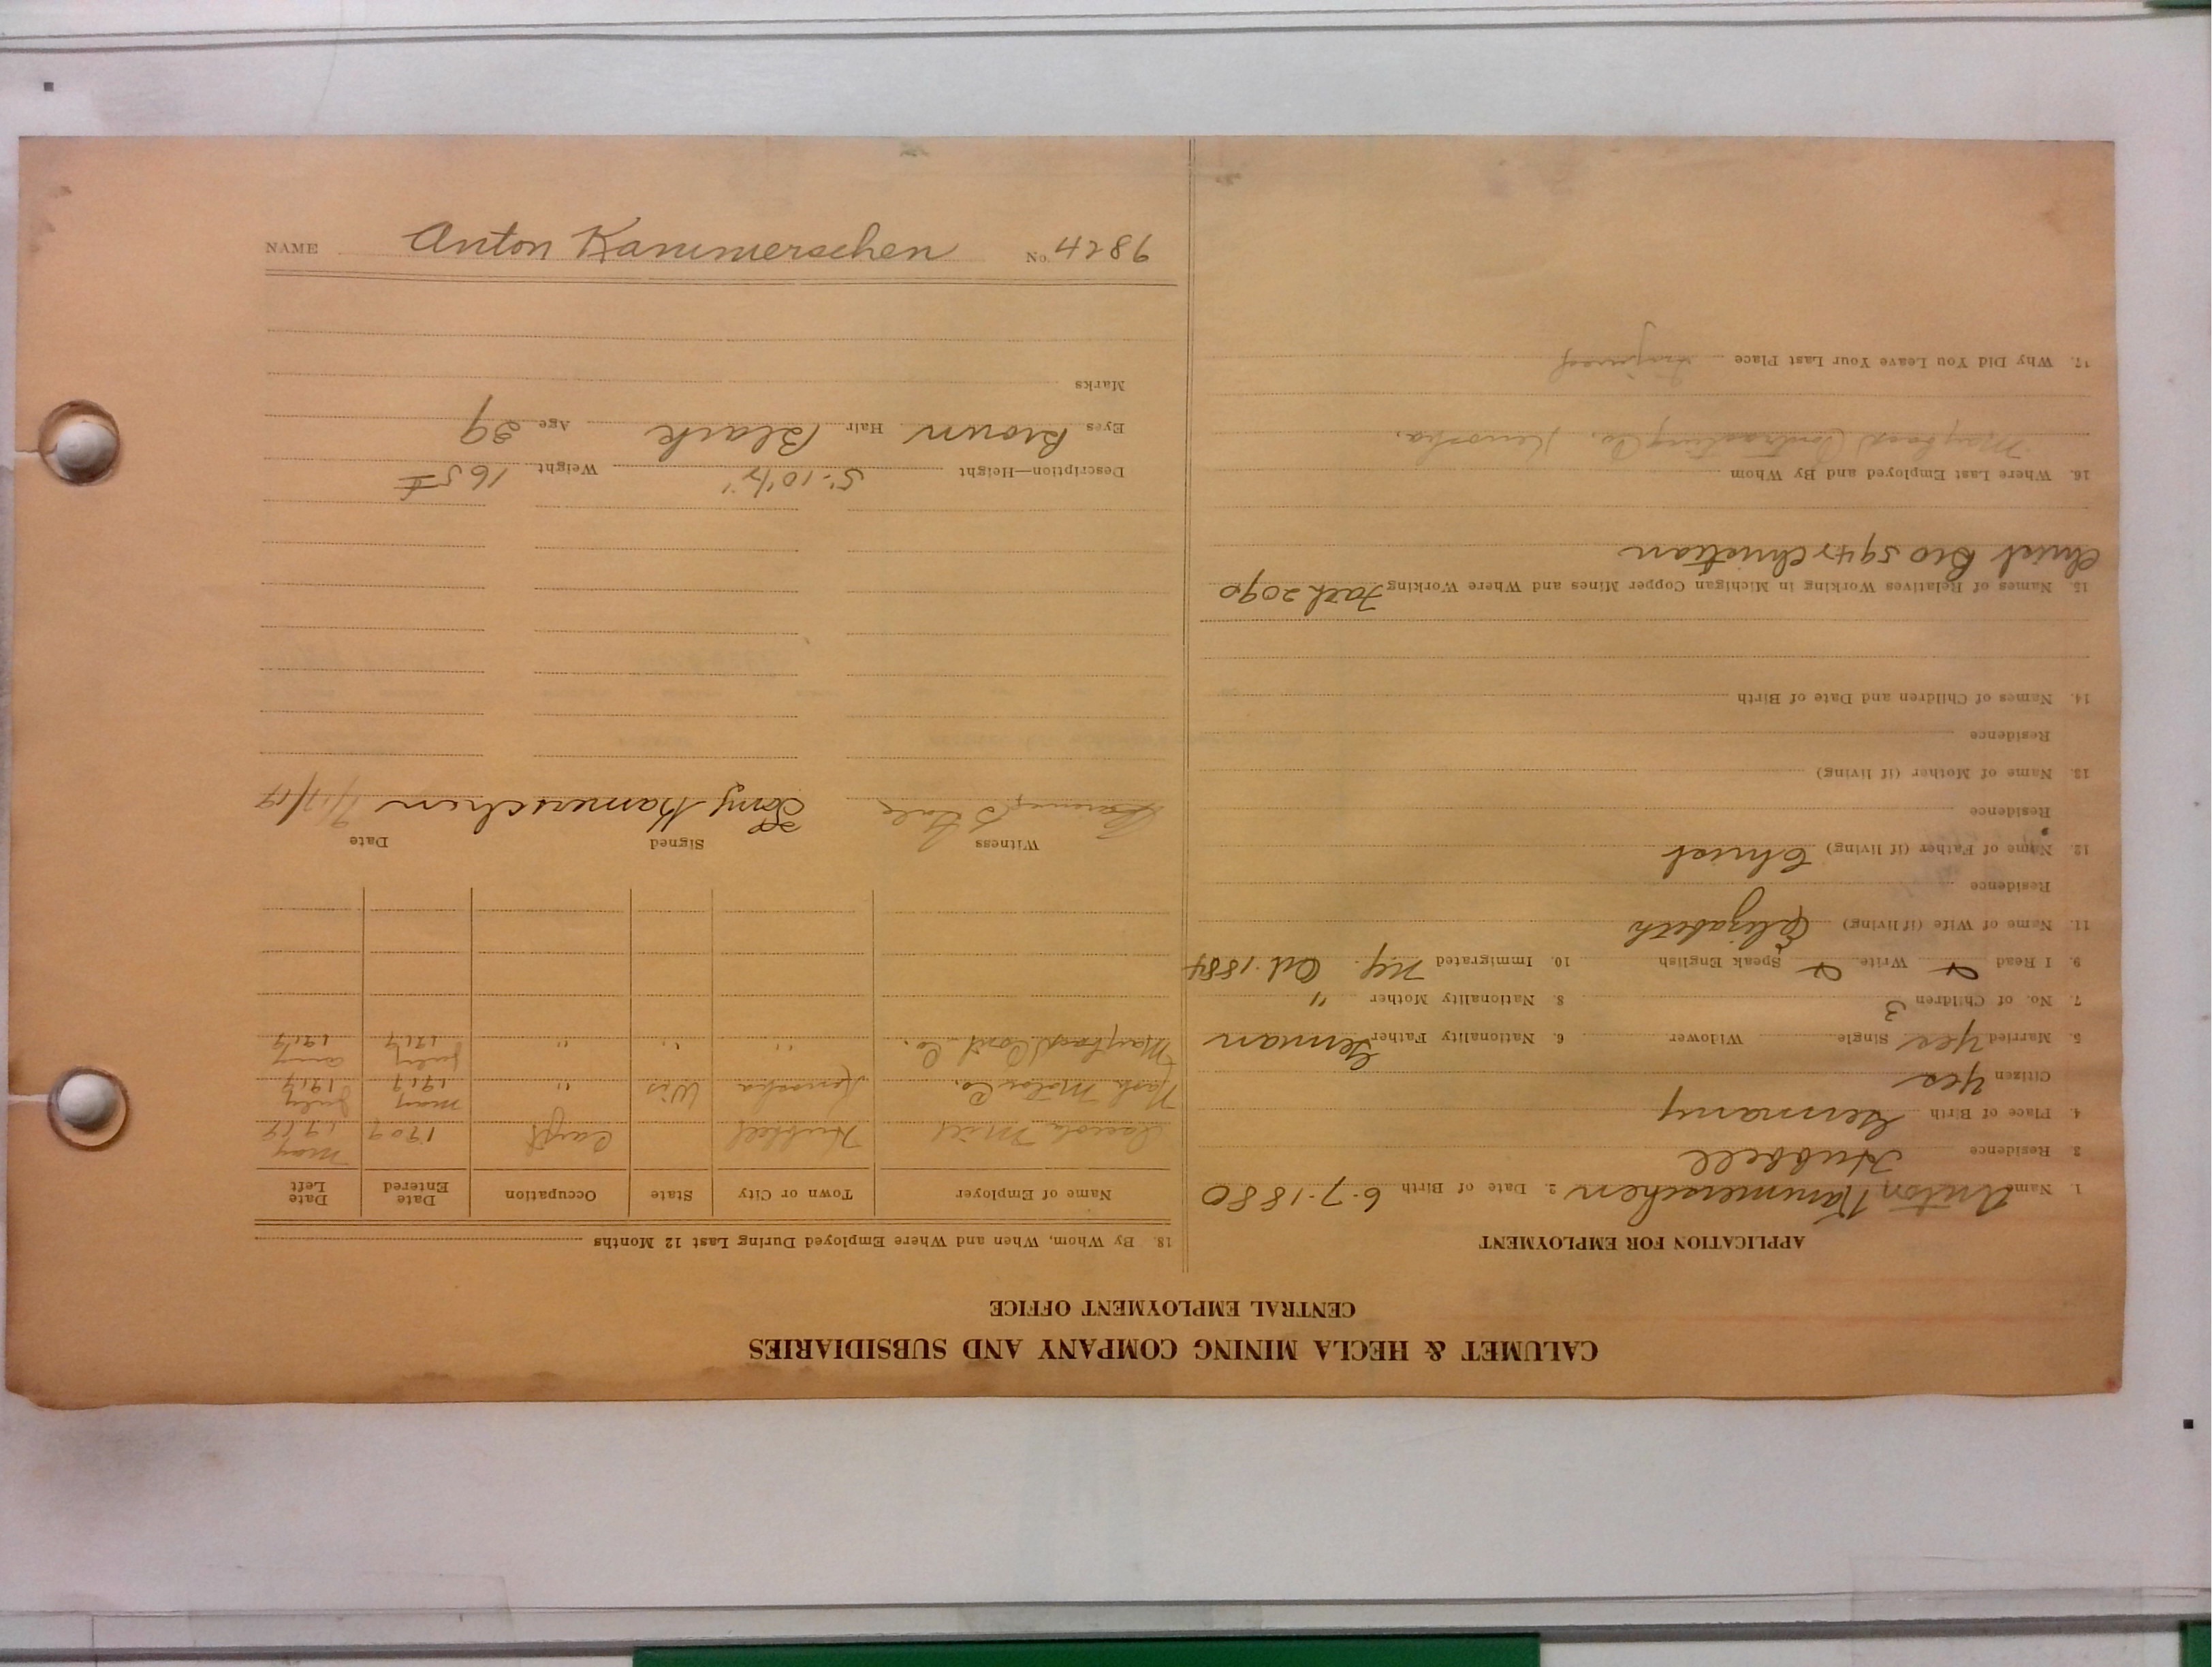 CALUMET & HECLA MINING COMPANY AND SUBSIDIARIES
CENTRAL EMPLOYMENT OFFICE
APPLICATION FOR EMPLOYMENT
1. Name Anton Kammerschen 2. Date of Birth 6-7-1880
3 Residence Hubbell
4. Place of Birth Germany
Citizen Yes
5. Married Yes Single Widower 6. Nationality Father German
7. No. of Children 3 8. Nationality Mother "
9. I Read Write Speak English 10. Immigrated NY. Oct. 1884
11. Name of Wife (if living) Elizabeth
Residence
12. Name of Father (if living) Christ
Residence
13. Name of Mother (if living)
Residence
14. Names of Children and Date of Birth
15. Names of Relatives Working in Michigan Copper Mines and Where Working Fath 2090
Christ Bro 594 Christian
16. Where Last Employed and By Whom
Contracting Co, Kenosha,
17. Why Did You Leave Your Last Place
18. By Whom, When and Where Employed During Last 12 Months
Name of Employer Town or City State Occupation Date Entered Date Left
Osceola Mill Hubbell Carpt 1909 May 1919
Nash Motor Co. Kenosha Wis " May 1919 July 1919
Cont Co. " " " July 1919 Aug 1919
Witness Signed Date
Tony Kamerschen 9/17/19
Description—Height 5'-10 1/2" Weight 165#
Eyes Brown Hair Black Age 39
Marks
NAME Anton Kammerschen No. 4286